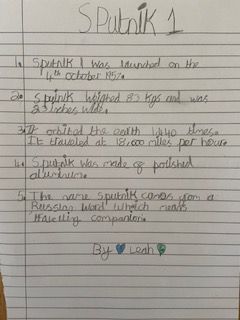 SPutnik 1
1. Sputnik 1 was launched on the
4th october 1957.
2. Sputnik weighed 83 kgs and was
23 inches wide.
3. It orbited the earth 1440 times.
It traveled at 18,000 miles per hour.
4. Sputnik was made of polished
aluminum.
5. The name Sputnik comes from a
Russian word which means
travelling companion.
By Leah